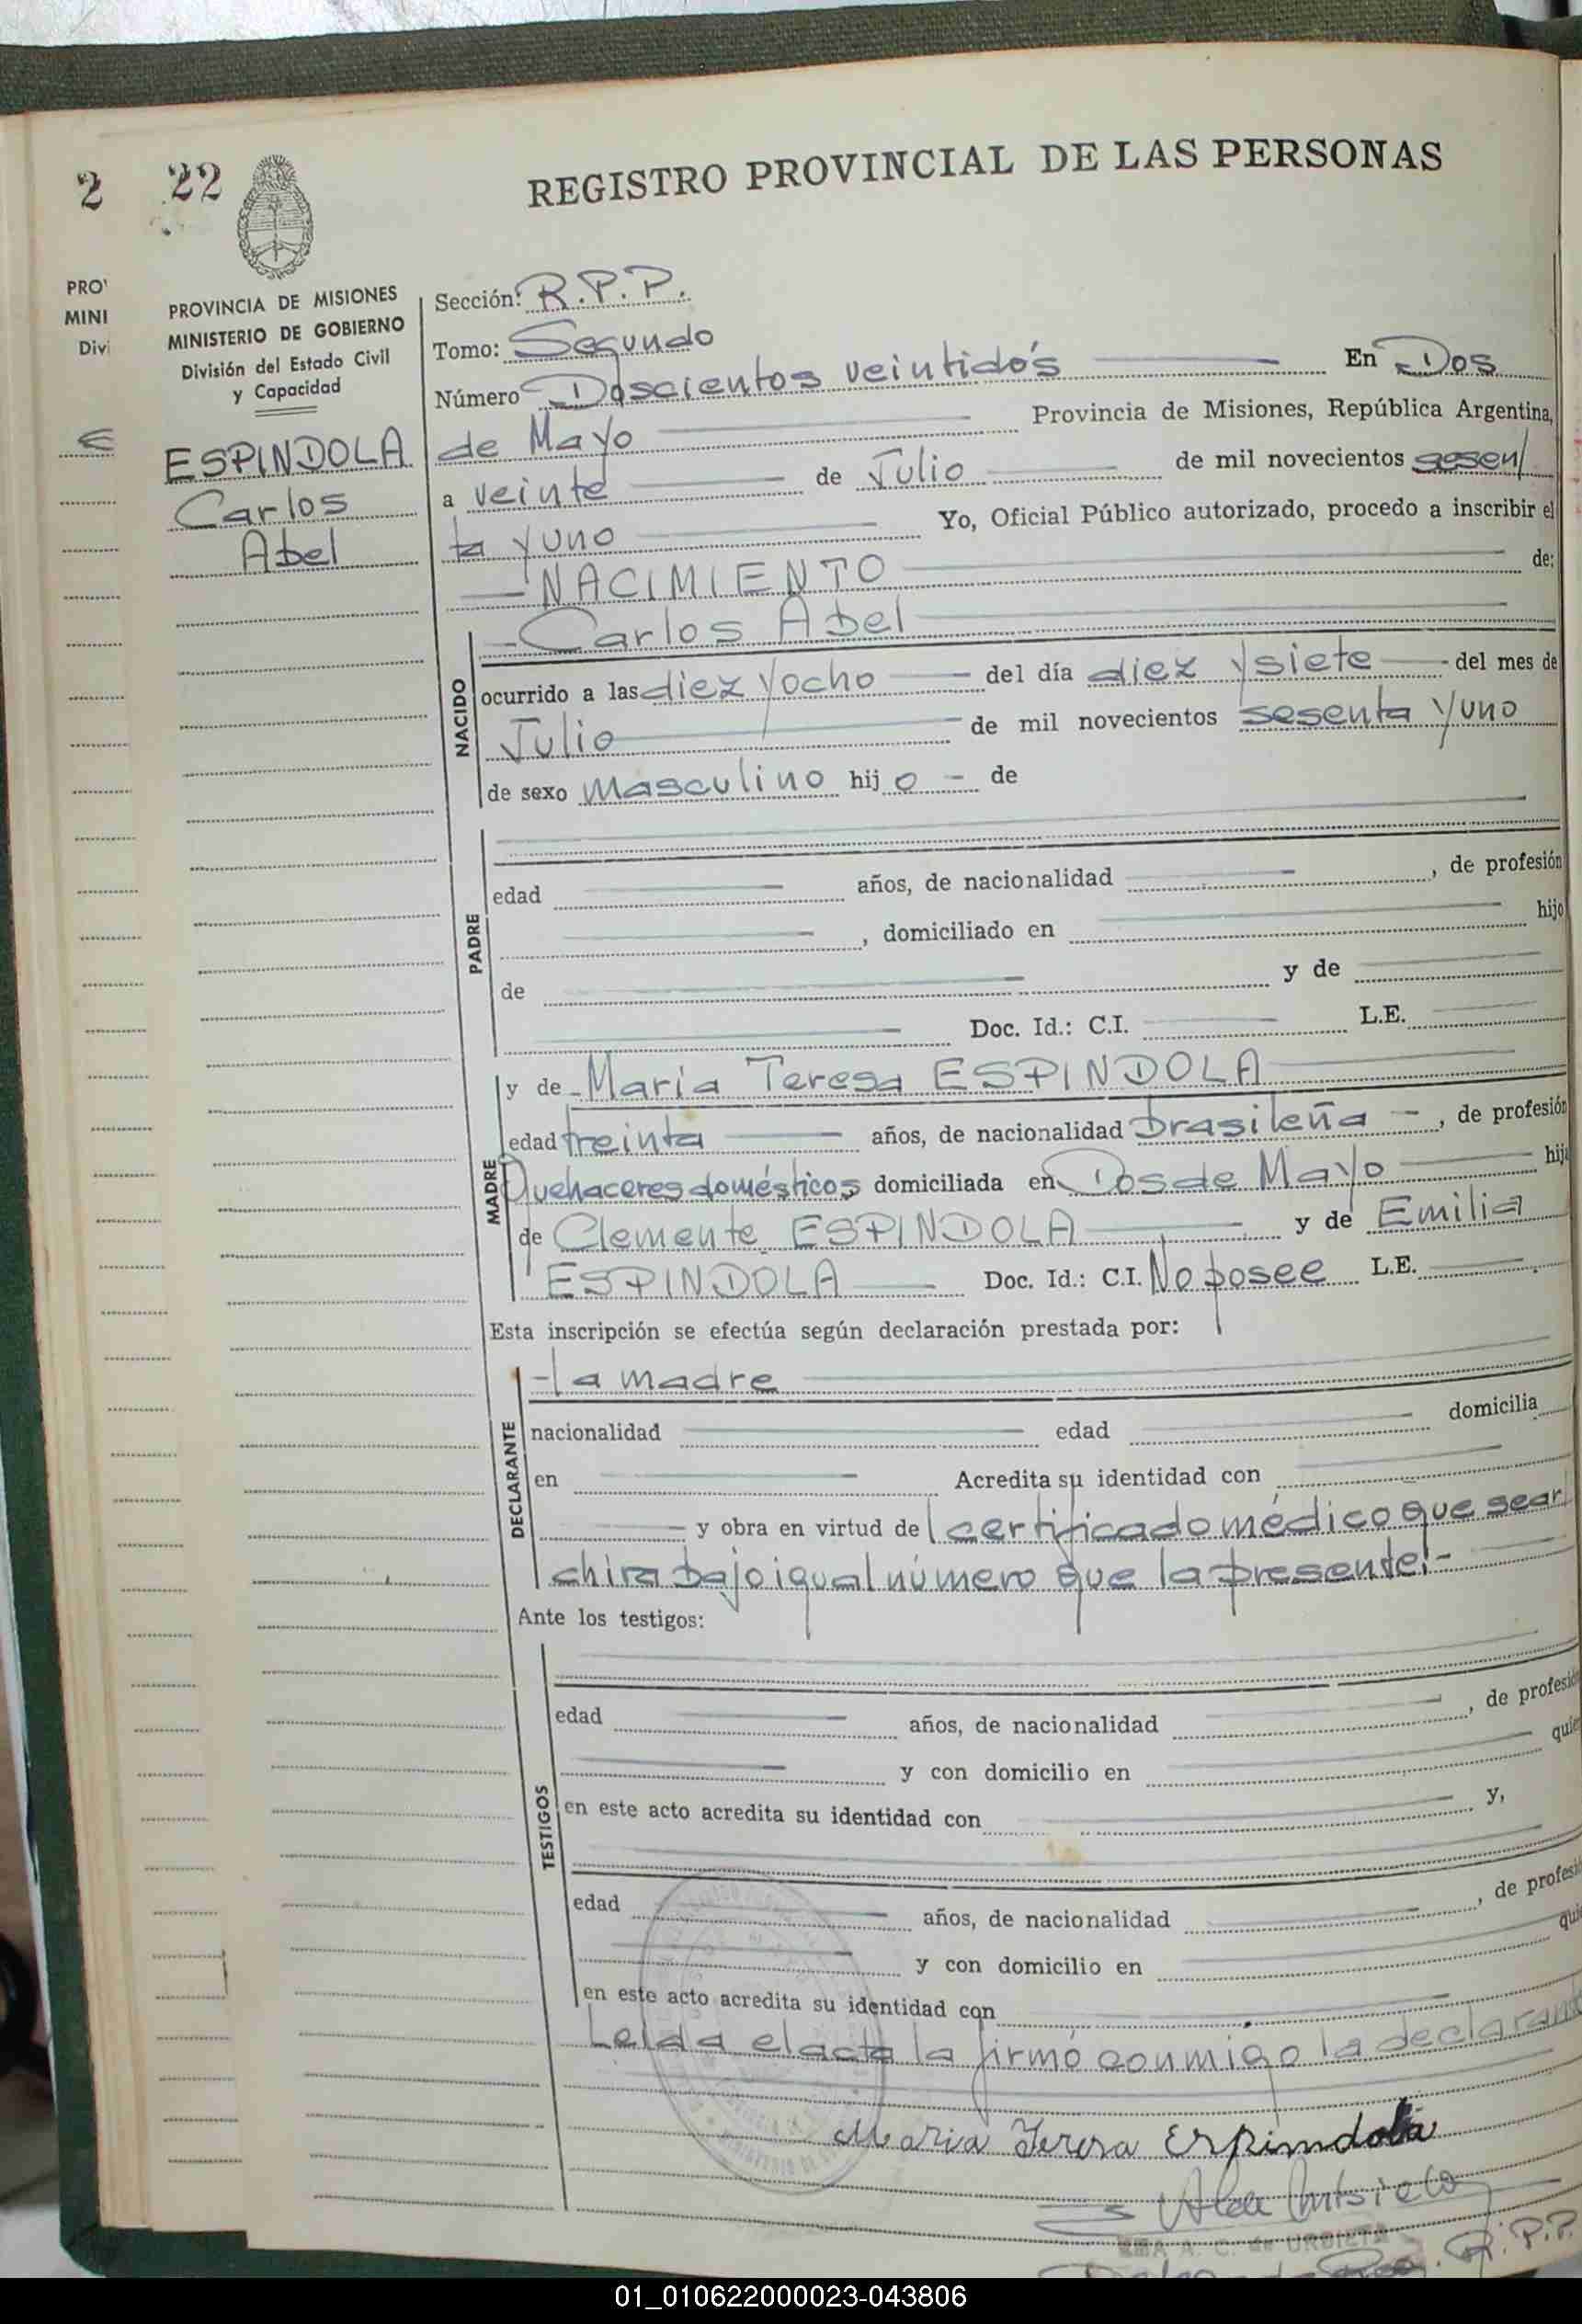 2 22
REGISTRO PROVINCIAL DE LAS PERSONAS
PRO'
MINI
Divi
PROVINCIA DE MISIONES
MINISTERIO DE GOBIERNO
División del Estado Civil
y Capacidad
ESPINDOLA
Carlos
Abel
Sección: R.P.P.
Tomo: Segundo
Número Doscientos veintidós En Dos
de Mayo Provincia de Misiones, República Argentina,
a veinte de Julio de mil novecientos sesen/
ta y uno Yo, Oficial Público autorizado, procedo a inscribir el
NACIMIENTO de:
NACIDO
Carlos Abel
ocurrido a las diez y ocho del día diez y siete del mes de
Julio de mil novecientos sesenta y uno
de sexo masculino hij o - de
PADRE
edad años, de nacionalidad , de profesión
, domiciliado en hijo
de y de
Doc. Id.: C.I. L.E.
MADRE
y de María Teresa ESPINDOLA
edad treinta años, de nacionalidad brasileña -, de profesión
Quehaceres domésticos domiciliada en Dos de Mayo hij
de Clemente ESPINDOLA y de Emilia
ESPINDOLA Doc. Id.: C.I. No posee L.E.
Esta inscripción se efectúa según declaración prestada por:
DECLARANTE
-la madre
nacionalidad edad domicilia
en Acredita su identidad con
y obra en virtud del certificado médico que se ar
chiva bajo igual número que la presente.-
Ante los testigos:
TESTIGOS
edad años, de nacionalidad , de profesió
y con domicilio en quie
en este acto acredita su identidad con y,
edad años, de nacionalidad , de profesi
y con domicilio en qui
en este acto acredita su identidad con
Leída el acta la firmó conmigo la declarant
Maria Teresa Espindola
A. C. de URBIETA
R.P.P.
01_010622000023-043806